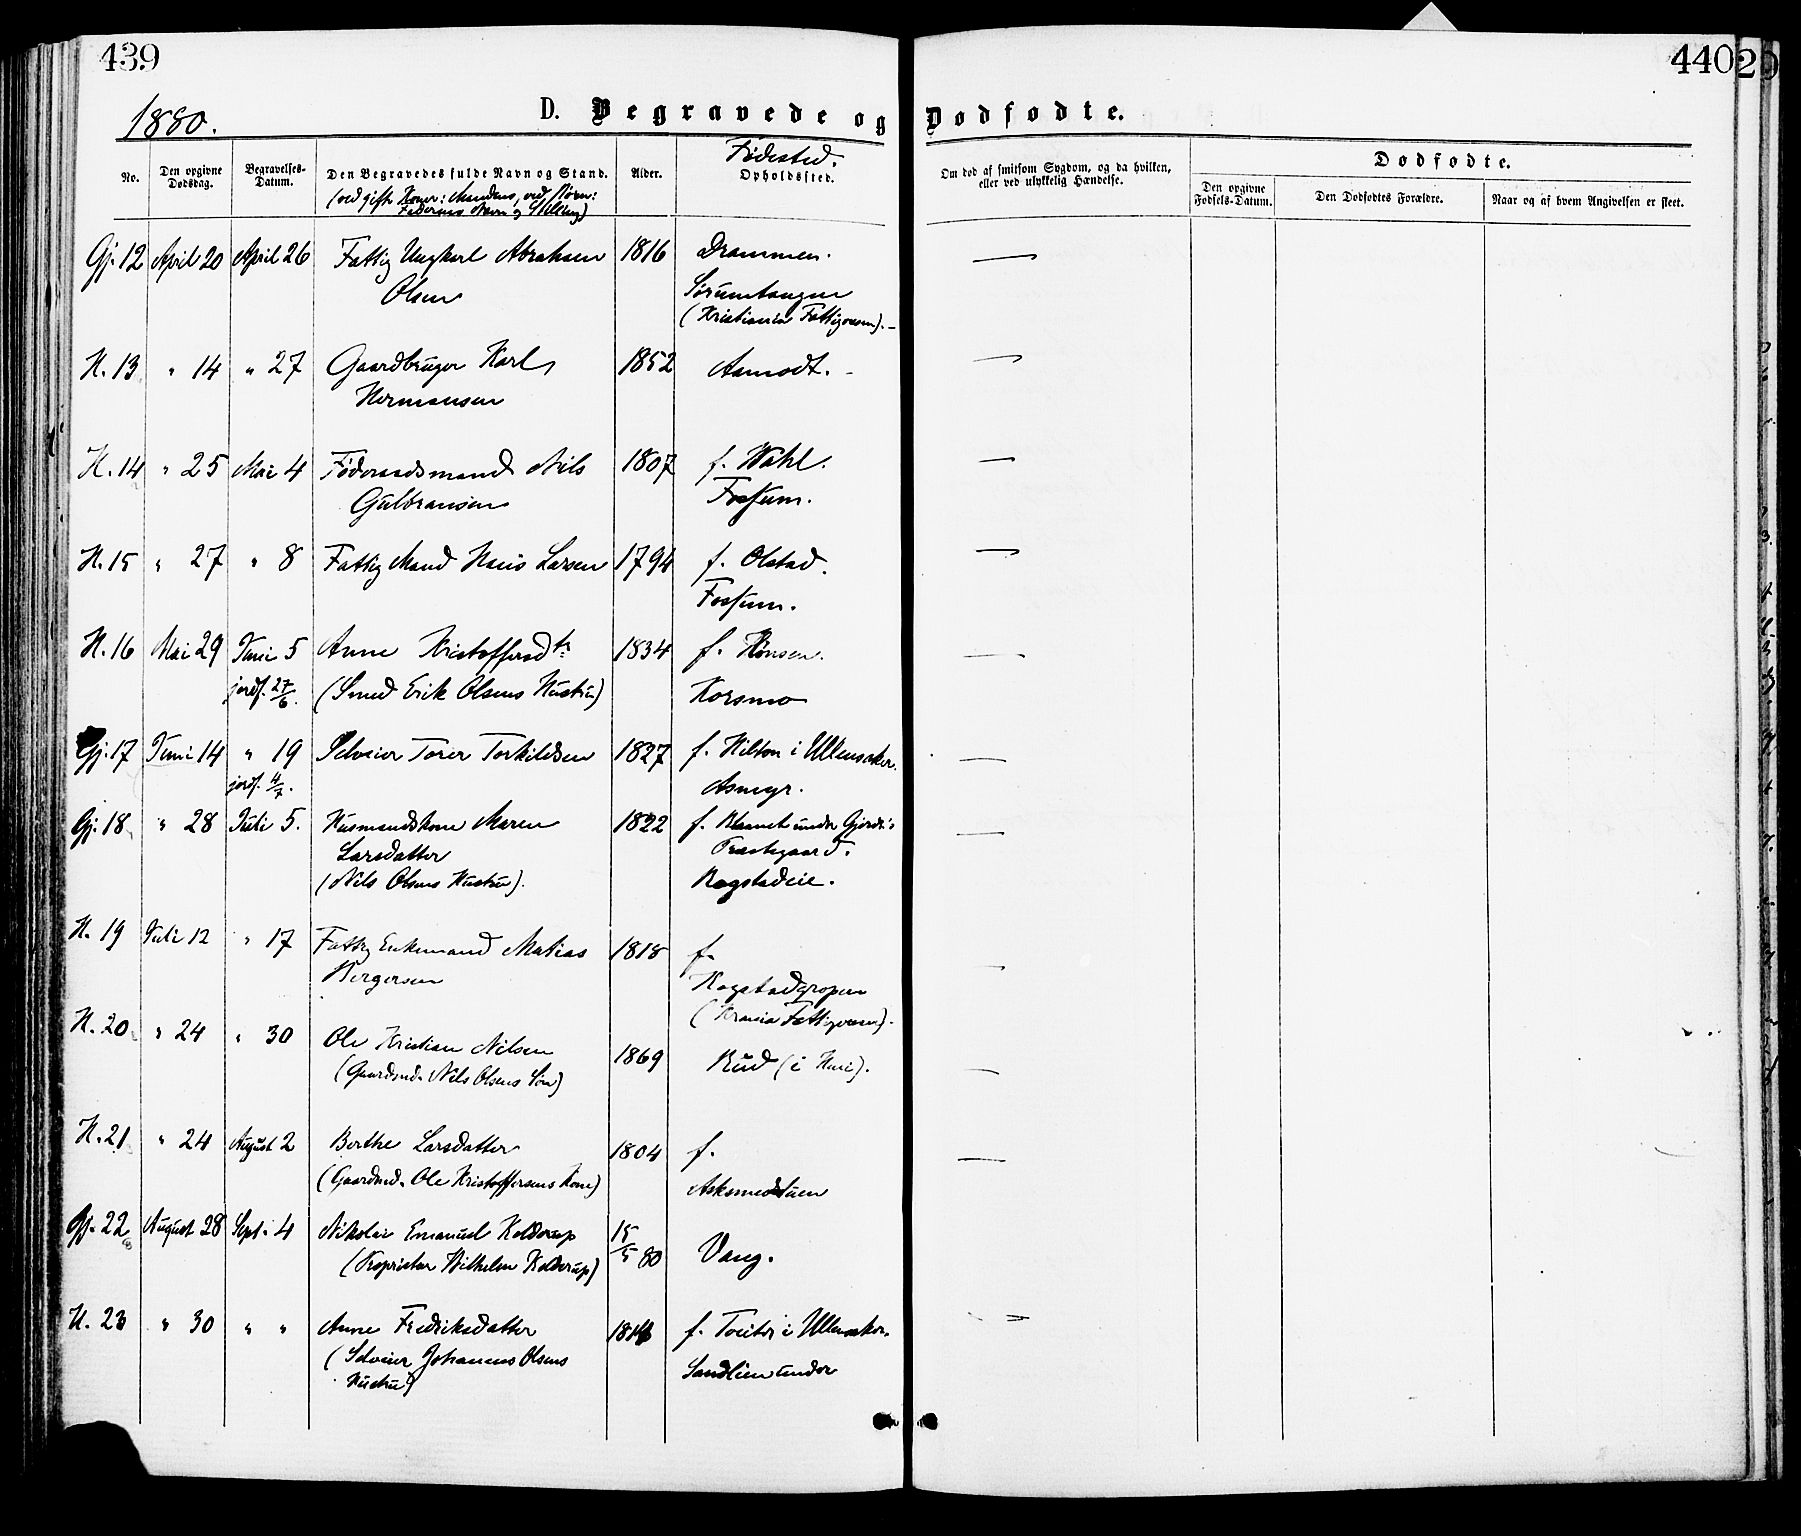 439
440
1880.
D. Begravede og Dødfødte.
No.
Den opgivne Dødsdag.
Begravelses-Datum.
Den Begravedes fulde Navn og Stand.
(ved gifte Koner: Mandens, ved Børn:
Faderens Navn og Stilling)
Alder.
Fødested.
Opholdssted.
Om død af smitsom Sygdom, og da hvilken,
eller ved ulykkelig Hændelse.
Dødfødte.
Den opgivne Fødsels-Datum.
Den Dødfødtes Forældre.
Naar og af hvem Angivelsen er skeet.
Gj. 12 April 20 April 26 Fattig Ungkarl Abraham 1816 Drammen.
Olsen Sørumtangen
(Kristiania Fattigvæsen).
H. 13 " 14 " 27 Gaardbruger Karl 1852 Aamodt.
Hermansen
H. 14 " 25 Mai 4 Føderaadsmand Nils 1807 f. Wahl.
Gulbransen Fossum.
H. 15 " 27 " 8 Fattig Mand Hans Larsen 1794 f. Olstad.
Fossum.
H. 16 Mai 29 Juni 5 Anne Kristoffersdtr 1834 f. Hønsen.
jordf. 27/6. (Smed Erik Olsens Hustru) Korsmo
Gj. 17 Juni 14 " 19 Selveier Torer Torkildsen 1827 f. Hilton i Ullensaker.
jordf. 4/7. Asmyr.
Gj. 18 " 28 Juli 5. Husmandskone Maren 1822 f. under Gjerdr's
Larsdatter Præstegaard.
(Nils Olsens Hustru). Rogstadeie.
H. 19 Juli 12 " 17 Fattig Enkemand Matias 1818 f.
Bergersen Kogstadgropen
(Krania Fattigvæsen).
H. 20 " 24 " 30 Ole Kristian Nilsen 1869 Rud (i Huri).
(Gaardmd. Nils Olsens Søn)
H. 21 " 24 August 2 Berthe Larsdatter 1804 f.
(Gaardmd. Ole Kristoffersens Kone) Askimedstuen
Gj. 22 August 28 Sept. 4 Nikolai Emanuel Kolderup 15/5 80 Vang.
(Proprietær Wilhelm Kolderup)
H. 23 " 30 " " Anne Fredriksdatter f. Tveiter i Ullensaker.
(Selveier Johannes Olsens Sandlien under
Hustru)